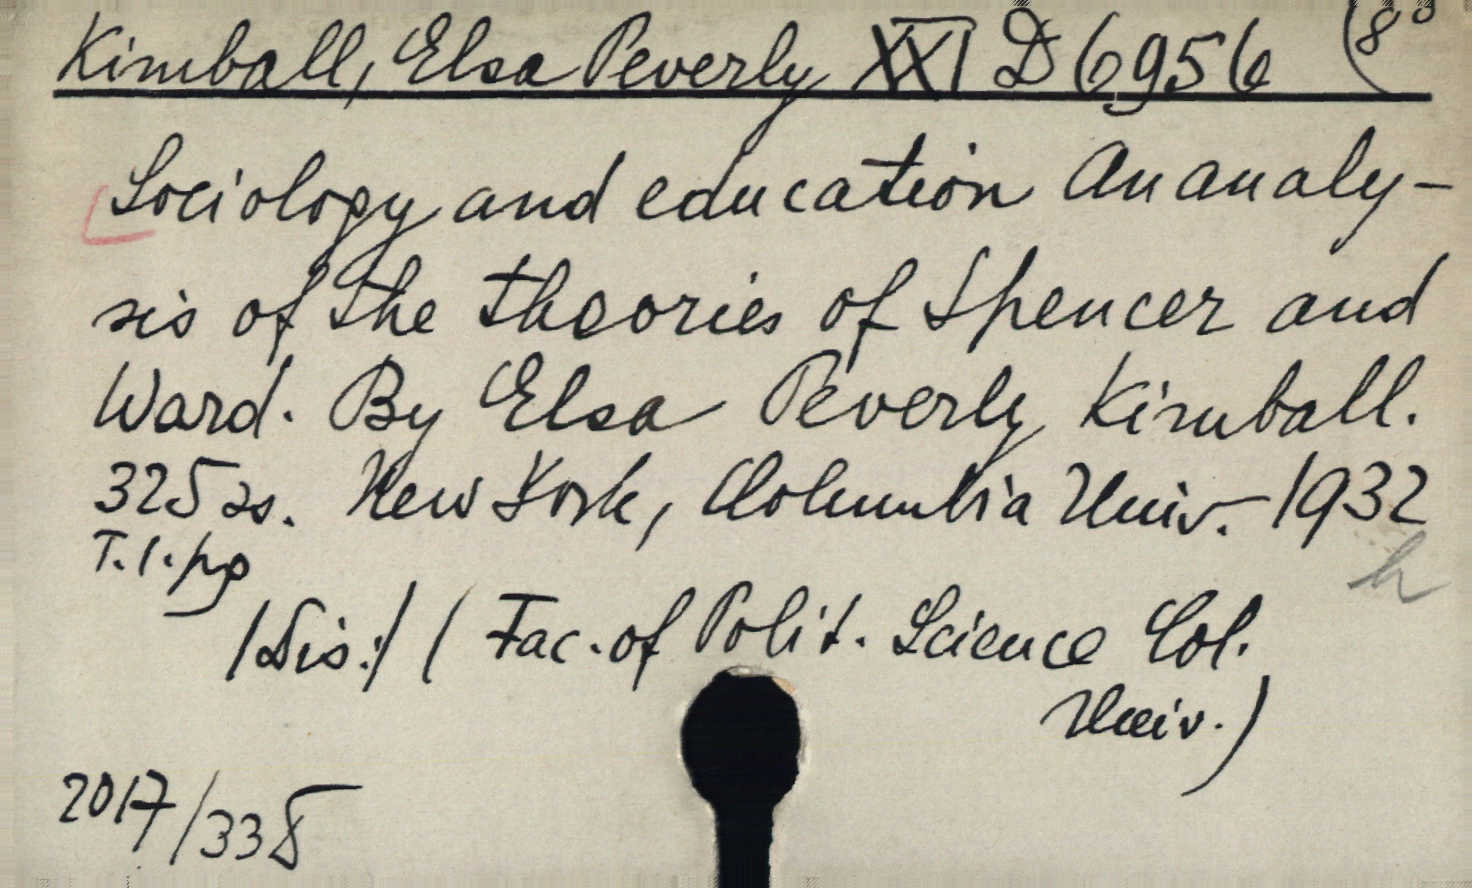 Kimball, Elsa Peverly XXI D 6956 (8°
Sociology and education An analy-
sis of the theories of Spencer and
Ward. By Elsa Peverly Kimball.
325 ss. New York, Columbia Univ. 1932
T.l.pp
/Dis./ (Fac. of Polit. Science Col.
Univ.)
2017/335